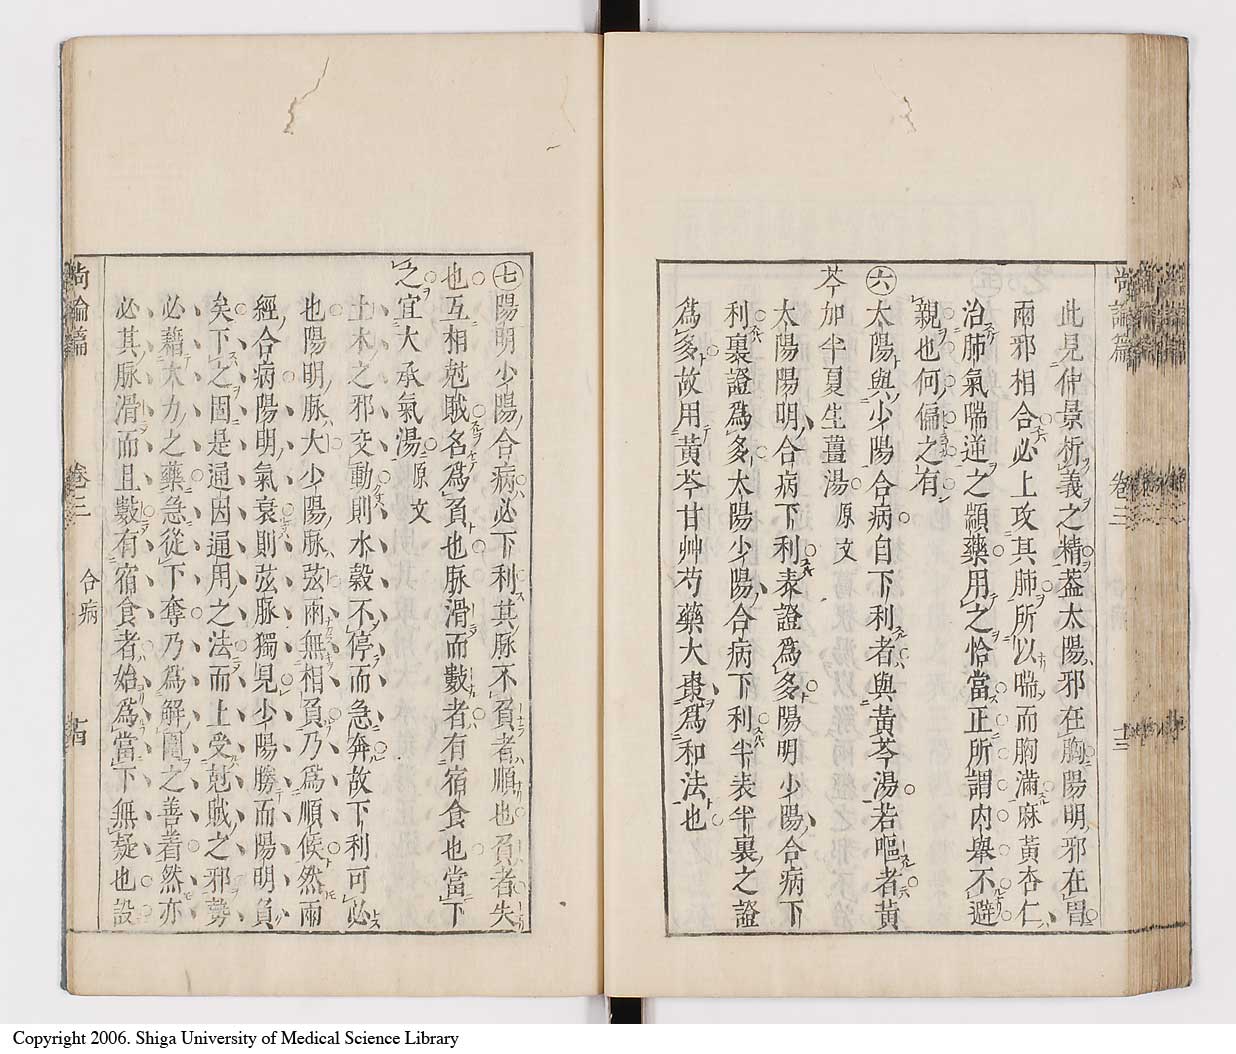 尚論篇 卷三 十三
此見仲景析義之精葢太陽邪在胸陽明邪在胃
兩邪相合必上攻其肺所以喘而胸滿麻黃杏仁
治肺氣喘逆之顓藥用之恰當正所謂内舉不避
親也何偏之有
㊅太陽與少陽合病自下利者與黃芩湯若嘔者黃
芩加半夏生薑湯 原文
太陽陽明合病下利表證爲多陽明少陽合病下
利裏證爲多太陽少陽合病下利半表半裏之證
爲多故用黃芩甘艸芍藥大棗爲和法也
㊆陽明少陽合病必下利其脉不負者順也負者失
也互相尅賊名爲負也脉滑而數者有宿食也當下
之宜大承氣湯 原文
土木之邪交動則水穀不停而急奔故下利可必
也陽明脉大少陽脉弦兩無相負乃爲順候然兩
經合病陽明氣衰則弦脉獨見少陽勝而陽明負
矣下之固是通因通用之法而上受尅賊之邪勢
必藉大力之藥急從下奪乃爲解圍之善着然亦
必其脉滑而且數有宿食者始爲當下無疑也設
尚論篇 卷三 合病 十四
Copyright 2006. Shiga University of Medical Science Library